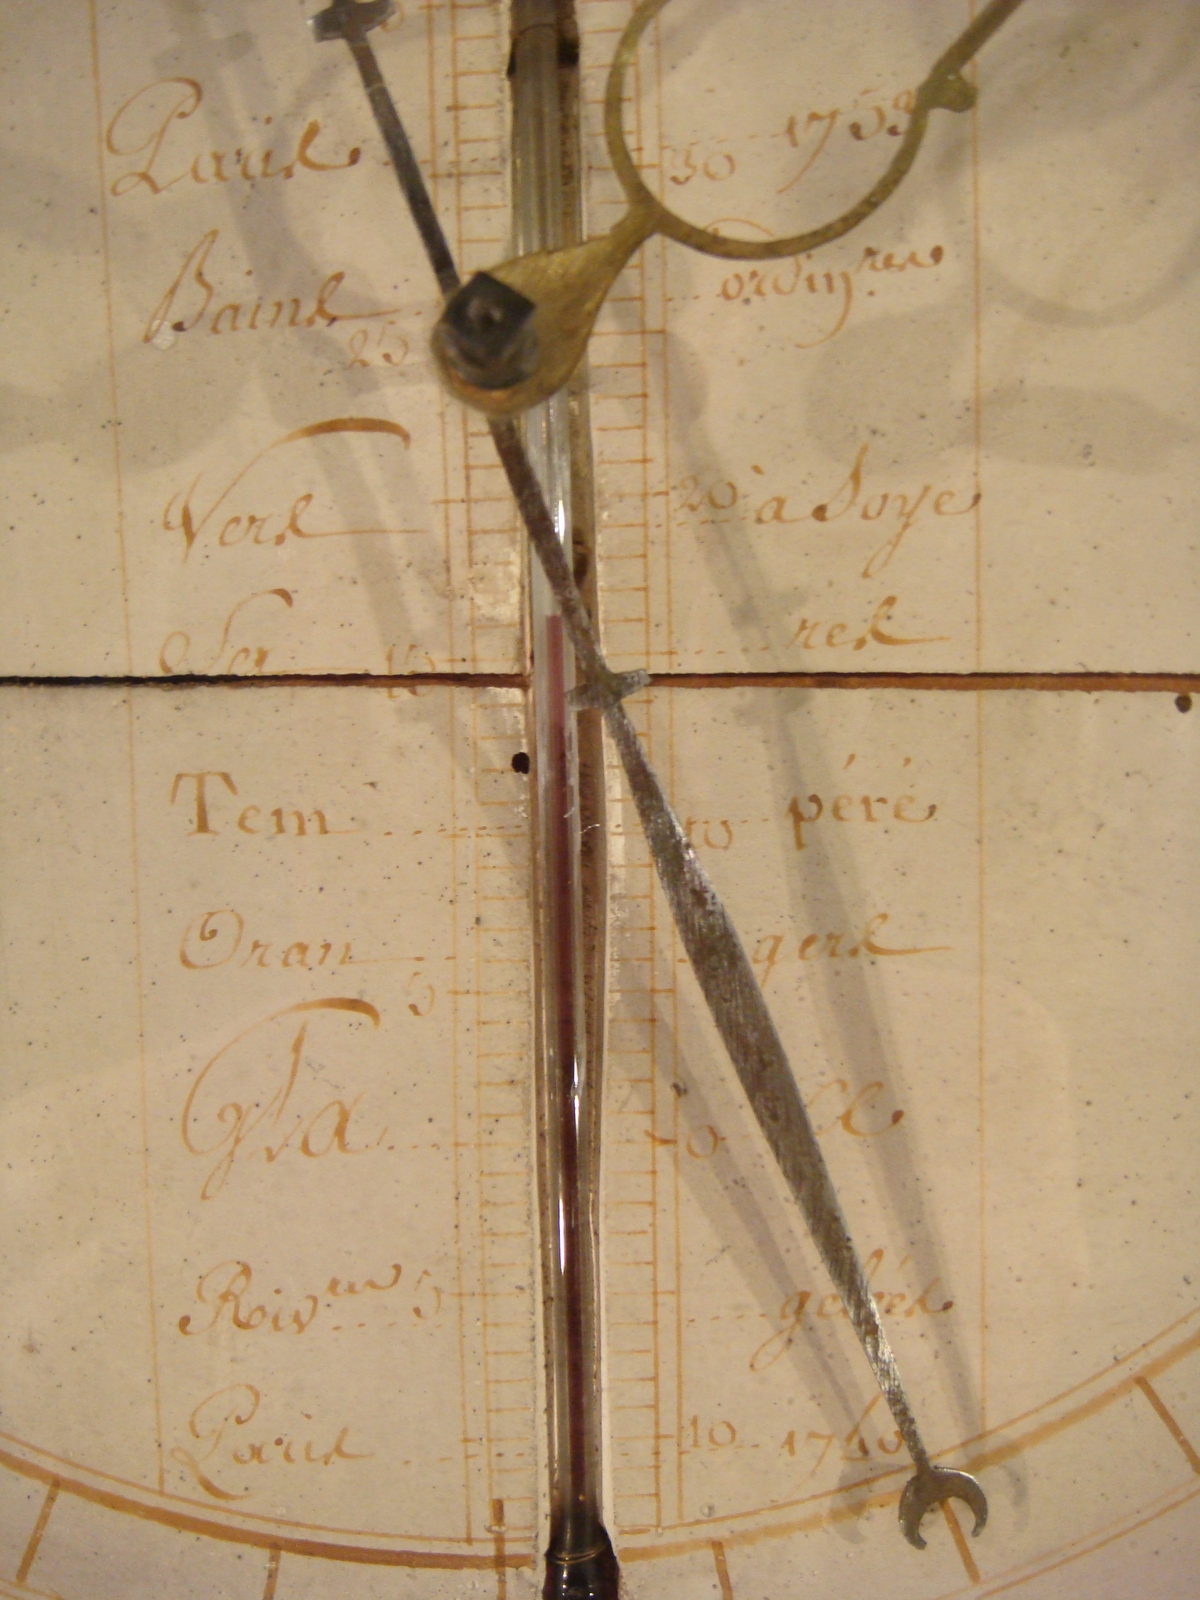 Paris 30 1753
Bains ordinres
25
Vers 20 à Soye
Ser res
15
Tem 10 péré
Oran gers
5
Gla 0 ce
Rivres 5 gelées
Paris 10 1740